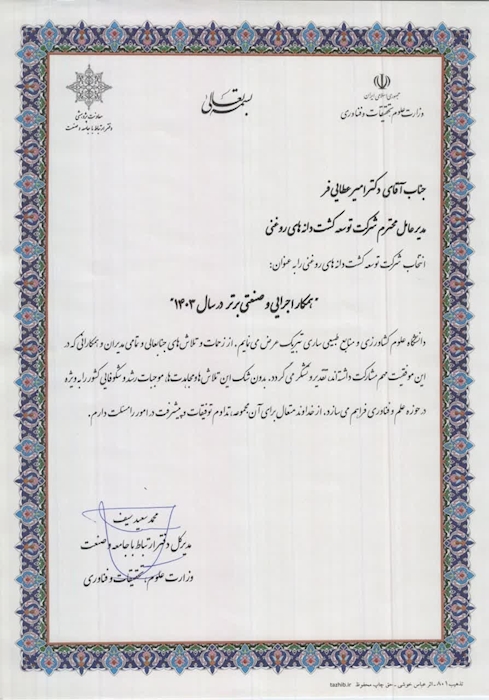 بسمه تعالی
جمهوری اسلامی ایران
وزارت علوم، تحقیقات و فناوری
معاونت پژوهشی
دفتر ارتباط با جامعه و صنعت
جناب آقای دکتر امیر عطایی فر
مدیر عامل محترم شرکت توسعه کشت دانه های روغنی
انتخاب شرکت توسعه کشت دانه های روغنی را به عنوان:
"همکار اجرایی و صنعتی برتر در سال ۱۴۰۳"
دانشگاه علوم کشاورزی و منابع طبیعی ساری تبریک عرض می نمایم. از زحمات و تلاش های جنابعالی و تمامی مدیران و همکارانی که در
این موفقیت مهم مشارکت داشته‌اند، تقدیر و تشکر می گردد. بدون شک این تلاش ها و مجاهدت ها، موجبات رشد و شکوفایی کشور را به ویژه
در حوزه علم و فناوری فراهم می سازد. از خداوند متعال برای آن مجموعه، تداوم توفیقات و پیشرفت در امور را مسئلت دارم.
محمد سعید سیف
مدیر کل دفتر ارتباط با جامعه و صنعت
وزارت علوم، تحقیقات و فناوری
تذهیب ۸۰۶ ـ اثر عباس خوشی ـ حق چاپ محفوظ tazhib.ir